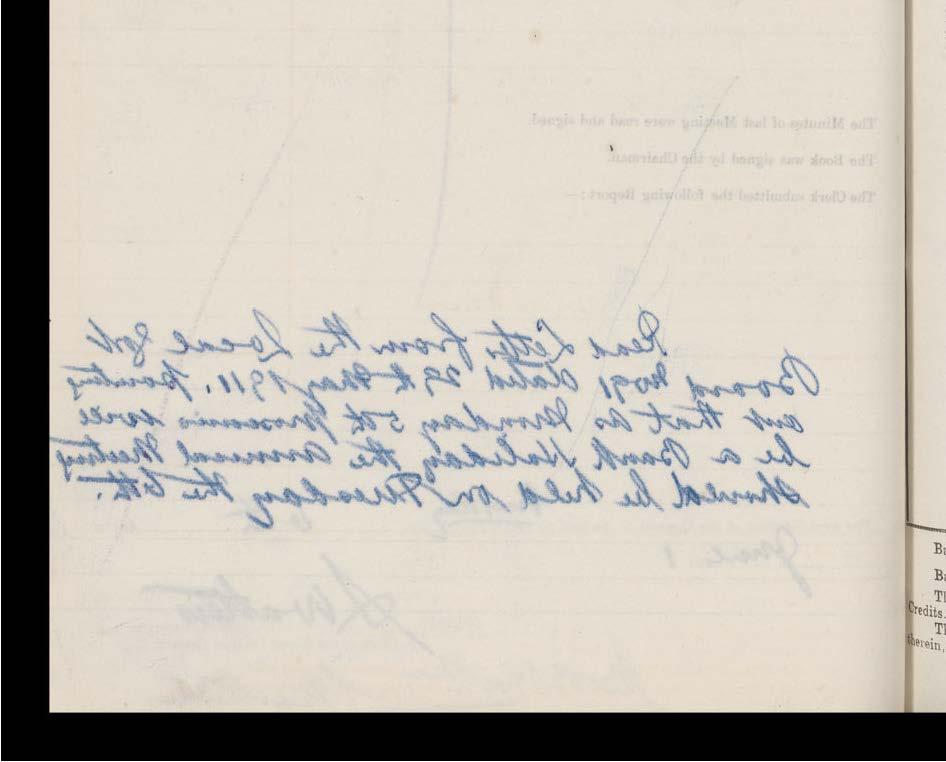 The Minutes of last Meeting were read and signed.
The Book was signed by the Chairman.
The Clerk submitted the following Report:—
Read Letter from the Local Govt
Board dated 29th May 1911. pointing
out that as Monday 5th proximo will
be a Bank Holiday the Annual Meeting
should be held on Tuesday the 6th.
Ba
Ba
Th
Credits.
Th
therein,